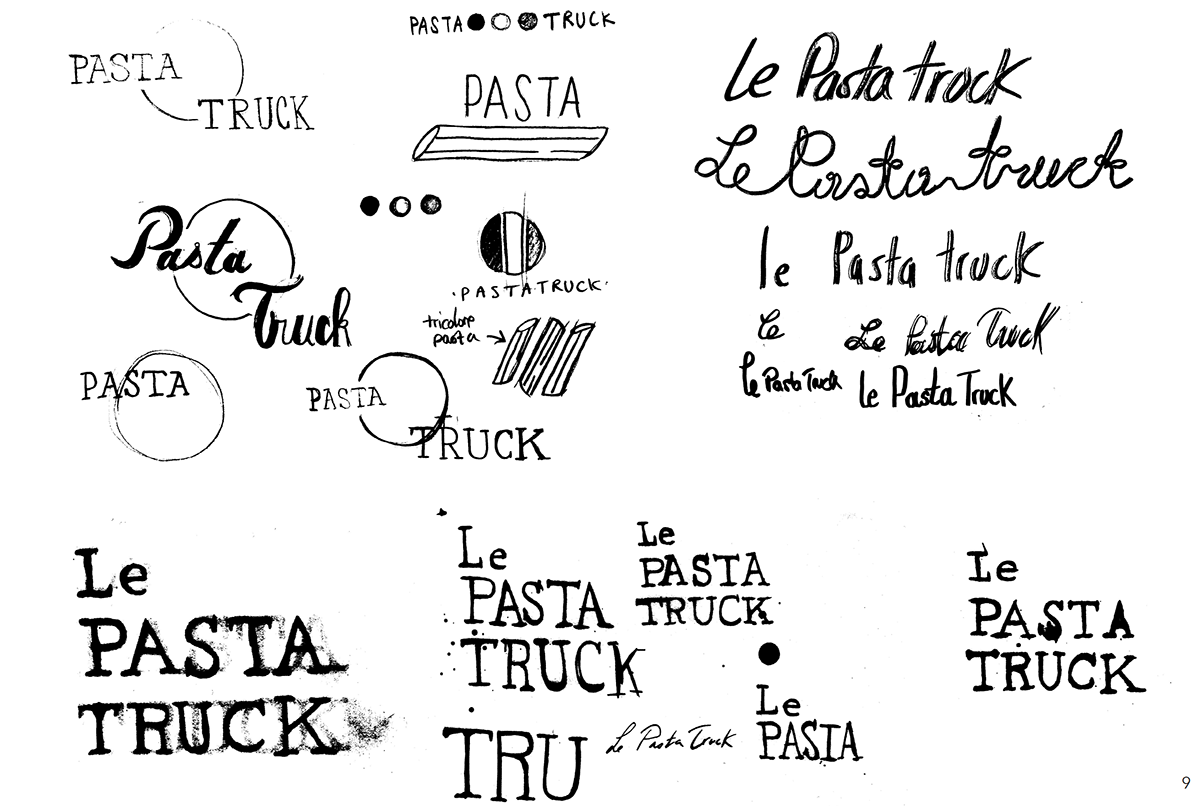 PASTA TRUCK
PASTA
TRUCK
PASTA
Pasta
Truck
·PASTATRUCK·
tricolore
pasta
PASTA
PASTA
TRUCK
Le Pasta truck
Le Pasta truck
le Pasta truck
le
Le Pasta Truck
le Pasta Truck
le Pasta Truck
Le
PASTA
TRUCK
Le
PASTA
TRUCK
TRU
Le
PASTA
TRUCK
Le Pasta Truck
Le
PASTA
Le
PASTA
TRUCK
9